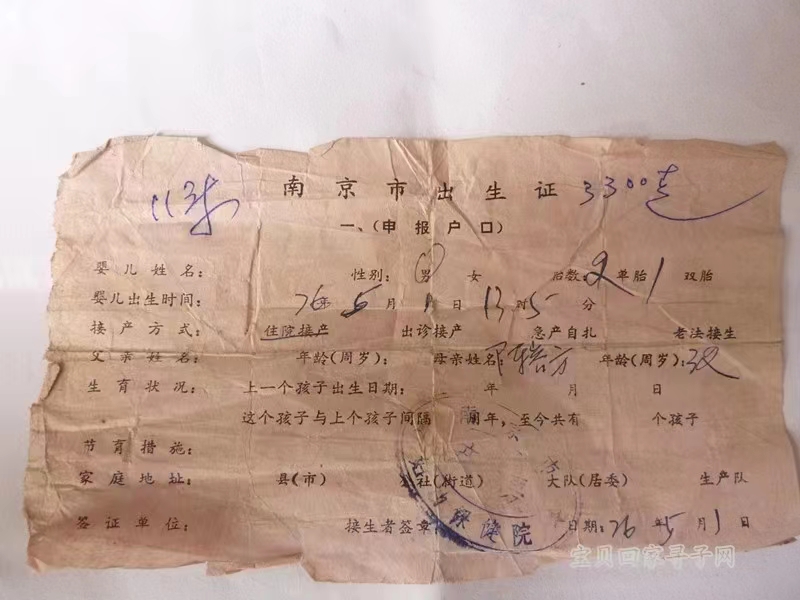 南京市出生证 3300克
一、(申报户口)
婴儿姓名: 性别: 男 女 胎数: 2 单胎 1 双胎
婴儿出生时间: 76年5月1日13时5分
接产方式: 住院接产 出诊接产 急产自扎 老法接生
父亲姓名: 年龄(周岁): 母亲姓名: 年龄(周岁): 32
生育状况: 上一个孩子出生日期: 年 月 日
这个孩子与上个孩子间隔 周年,至今共有 个孩子
节育措施:
家庭地址: 县(市) 公社(街道) 大队(居委) 生产队
签证单位: 接生者签章 日期: 76年5月1日
院
宝贝回家寻子网